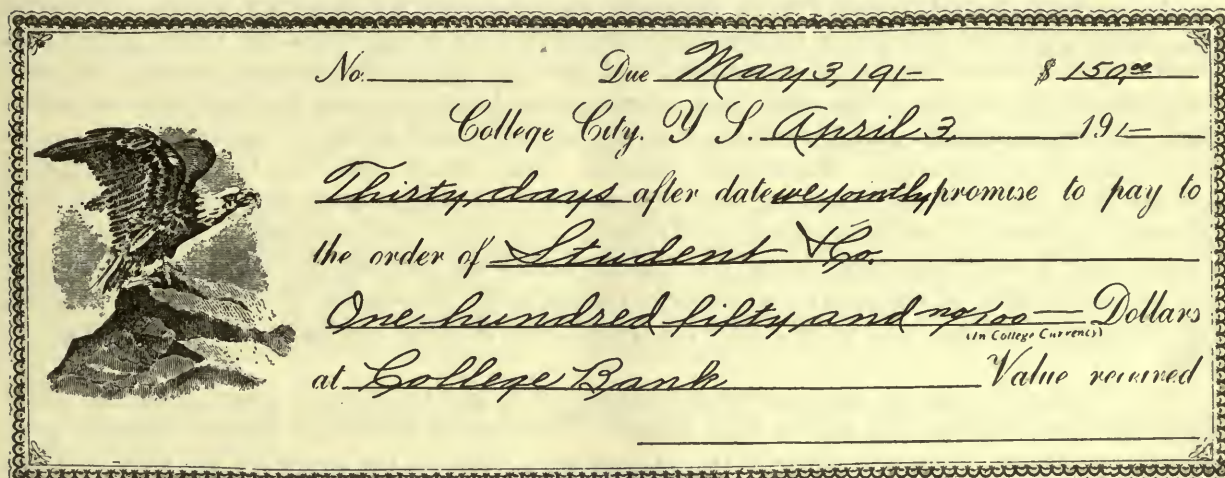 No. Due May 3, 191- $150.00
College City. Y S. April 3, 191-
Thirty days after date we jointly promise to pay to
the order of Student & Co.
One hundred fifty and no/100 — Dollars
(In College Currency)
at College Bank Value received